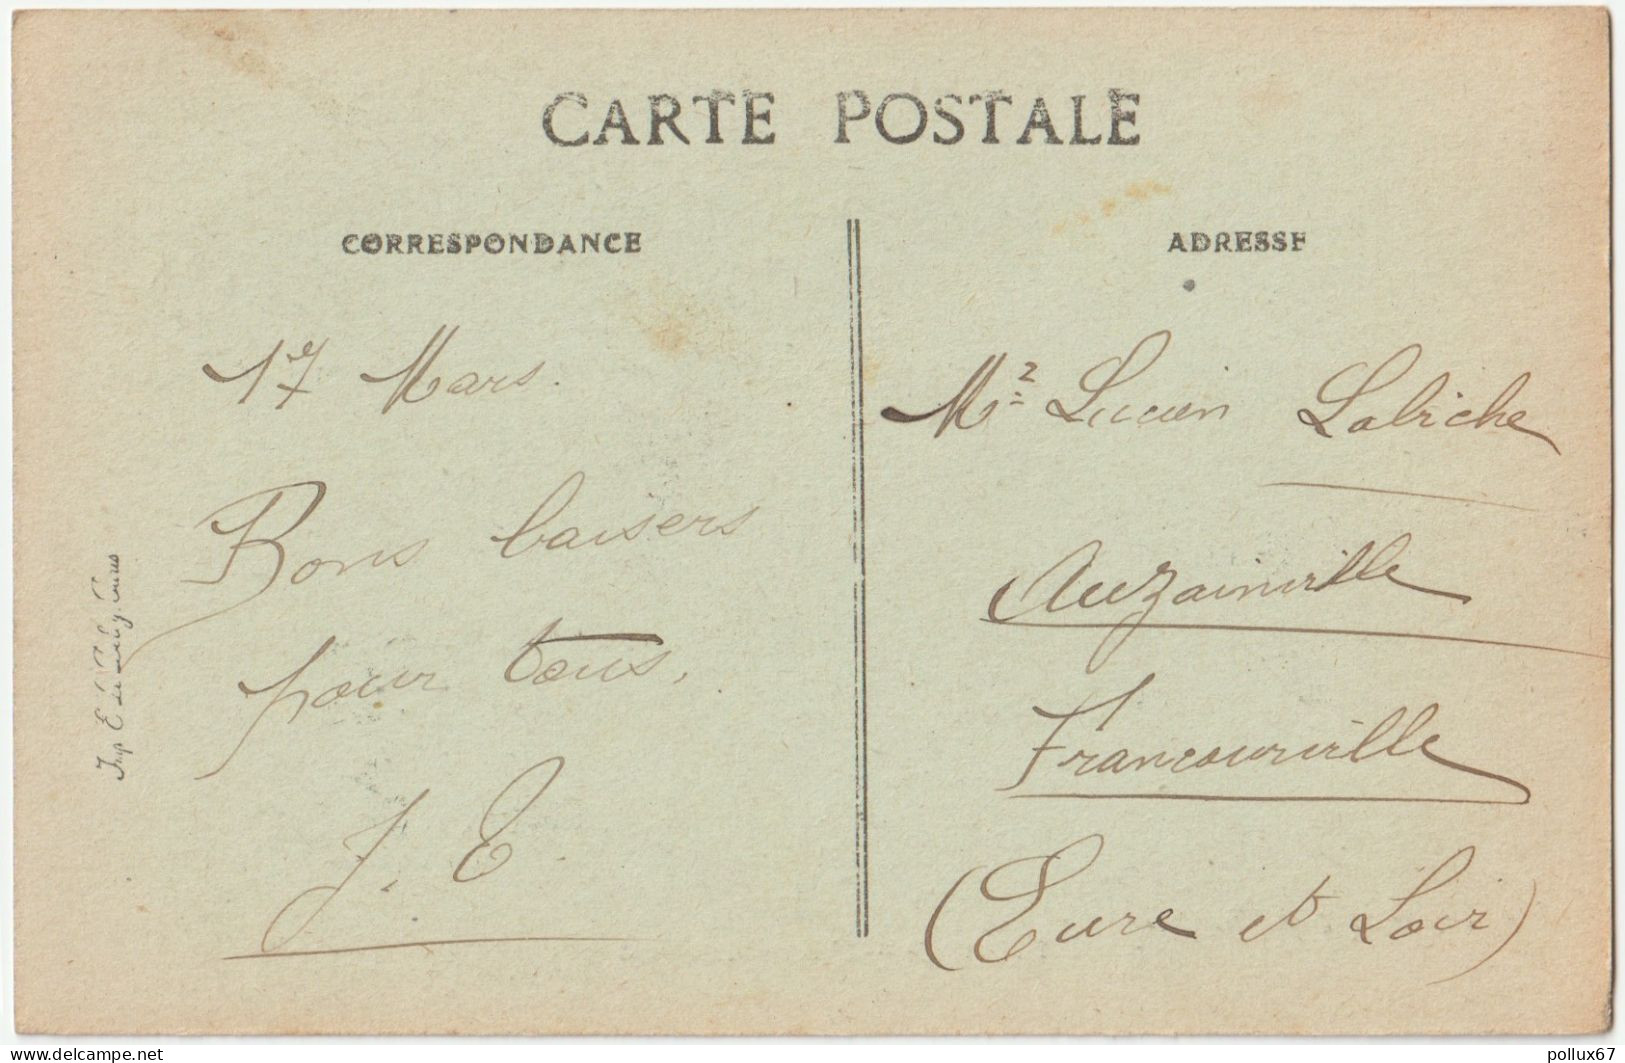 CARTE POSTALE
CORRESPONDANCE
17 Mars.
Bons baisers
pour tous.
J. E.
ADRESSE
Mr Lucien Labiche
Auzainville
Francourville
(Eure et Loir)
Imp E. Le
delcampe.net
pollux67